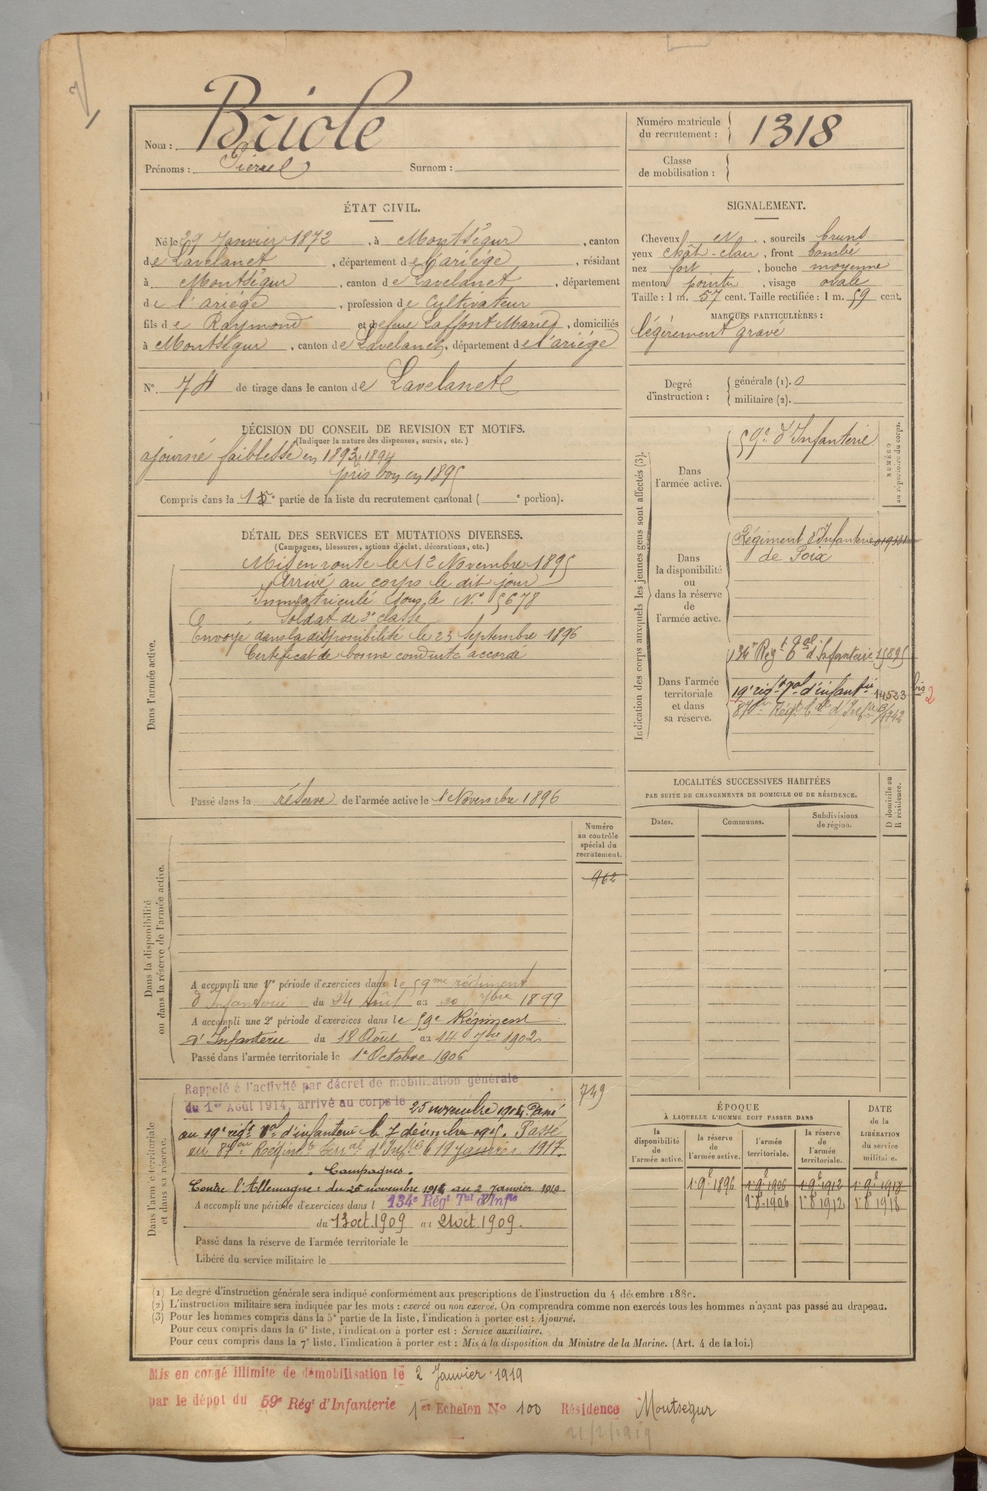 Nom : Briole
Prénoms : Pierre Surnom :
Numéro matricule du recrutement : 1318
Classe de mobilisation :
ÉTAT CIVIL.
Né le 29 Janvier 1872, à Montségur, canton
de Lavelanet, département de l'ariège, résidant
à Montségur, canton de Lavelanet, département
de l'ariège, profession de Cultivateur
fils de Raymond et de feue Laffont Marie, domiciliés
à Montségur, canton de Lavelanet, département de l'ariège
N° 74 de tirage dans le canton de Lavelanet
SIGNALEMENT.
Cheveux N., sourcils bruns
yeux chât-clair, front bombé
nez fort, bouche moyenne
menton pointu, visage ovale
Taille : 1 m. 57 cent. Taille rectifiée : 1 m. 59 cent.
MARQUES PARTICULIÈRES :
légèrement gravé
Degré d'instruction : générale (1). 0
militaire (2).
DÉCISION DU CONSEIL DE REVISION ET MOTIFS.
(Indiquer la nature des dispenses, sursis, etc.)
ajourné faiblesse en 1893, 1894
pris bon en 1895
Compris dans la 1e partie de la liste du recrutement cantonal ( e portion).
DÉTAIL DES SERVICES ET MUTATIONS DIVERSES.
(Campagnes, blessures, actions d'éclat, décorations, etc.)
Dans l'armée active.
Mis en route le 12 Novembre 1895
Arrivé au corps le dit jour
Immatriculé sous le N° 5678
Soldat de 2e classe
Envoyé dans la disponibilité le 23 Septembre 1896
Certificat de bonne conduite accordé
Passé dans la réserve de l'armée active le 1 Novembre 1896
Indication des corps auxquels les jeunes gens sont affectés (3).
NUMÉRO au répertoire du corps.
Dans l'armée active.
59e d'Infanterie
Dans la disponibilité ou dans la réserve de l'armée active.
Régiment d'Infanterie
de Foix
Dans l'armée territoriale et dans sa réserve.
134e Regt tal d'Infanterie 15895
19e régt tal d'infantie 14533 bis 2
87e Régt tal d'Infie
LOCALITÉS SUCCESSIVES HABITÉES
PAR SUITE DE CHANGEMENTS DE DOMICILE OU DE RÉSIDENCE.
Dates. Communes. Subdivisions de région.
D domicile ou R résidence.
Dans la disponibilité ou dans la réserve de l'armée active.
Numéro au contrôle spécial du recrutement.
962
A accompli une 1re période d'exercices dans le 59me régiment
d'Infanterie du 24 Août au 20 7bre 1899
A accompli une 2e période d'exercices dans le 59e Régiment
d'Infanterie du 18 Août au 14 7bre 1902
Passé dans l'armée territoriale le 1e Octobre 1906
Dans l'armée territoriale et dans sa réserve.
749
Rappelé à l'activité par décret de mobilisation générale
du 1er Août 1914, arrivé au corps le 25 novembre 1914. Passé
au 19e régt tal d'infanterie le 7 décembre 1915. Passé
au 87eme Régiment Terral d'Infie le 19 Janvier 1917.
Campagnes.
Contre l'Allemagne : du 25 novembre 1914 au 2 janvier 1919
A accompli une période d'exercices dans l 134e Régt Tal d'Infie
du 13 oct. 1909 au 21 oct. 1909.
Passé dans la réserve de l'armée territoriale le
Libéré du service militaire le
ÉPOQUE
À LAQUELLE L'HOMME DOIT PASSER DANS
DATE DE LA LIBÉRATION du service militaire.
la disponibilité de l'armée active. la réserve de l'armée active. l'armée territoriale. la réserve de l'armée territoriale.
1.9e 1896 1.9e 1906 1.9e 1912 1.9e 1918
1.8 1906 1.8 1912 1.8 1918
(1) Le degré d'instruction générale sera indiqué conformément aux prescriptions de l'instruction du 4 décembre 1889.
(2) L'instruction militaire sera indiquée par les mots : exercé ou non exercé. On comprendra comme non exercés tous les hommes n'ayant pas passé au drapeau.
(3) Pour les hommes compris dans la 5e partie de la liste, l'indication à porter est : Ajourné.
Pour ceux compris dans la 6e liste, l'indication à porter est : Service auxiliaire.
Pour ceux compris dans la 7e liste, l'indication à porter est : Mis à la disposition du Ministre de la Marine. (Art. 4 de la loi.)
Mis en congé illimité de démobilisation le 2 Janvier 1919
par le dépôt du 59e Régt d'Infanterie 1er Echelon N° 100 Résidence Montségur